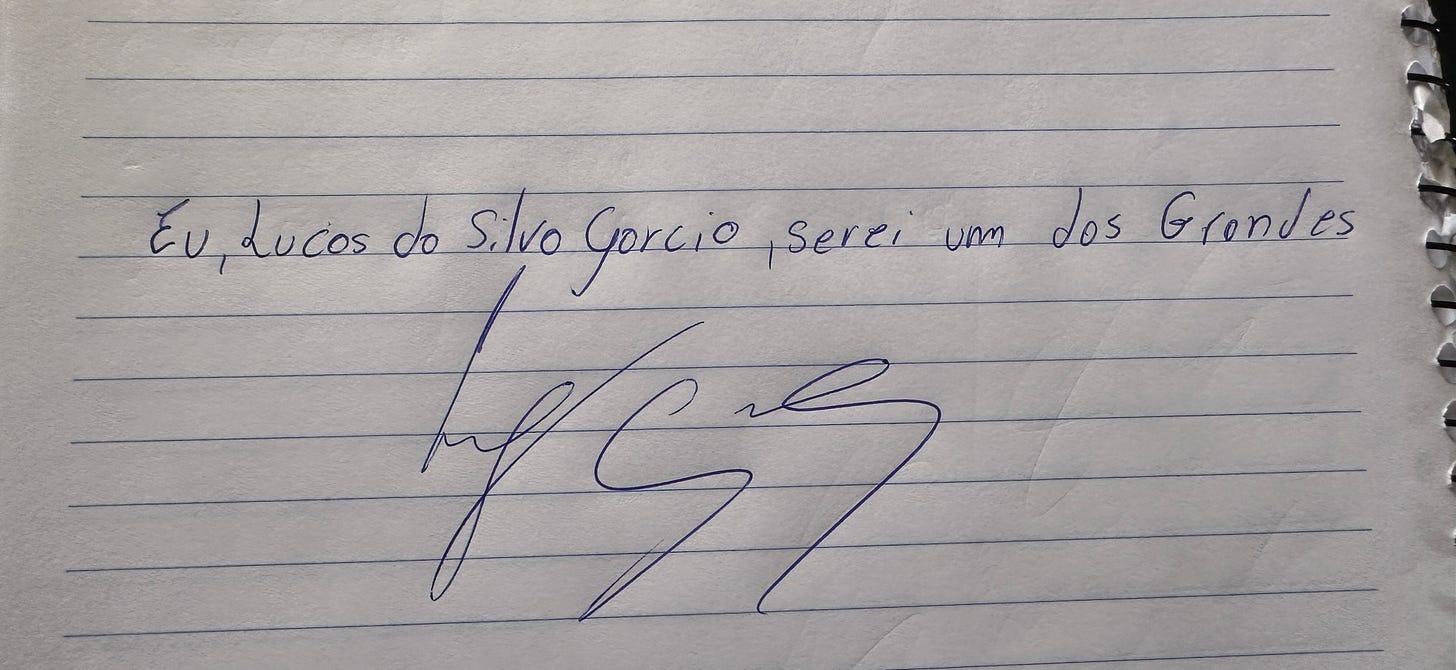 Eu, Lucas da Silva Garcia, serei um dos Grandes